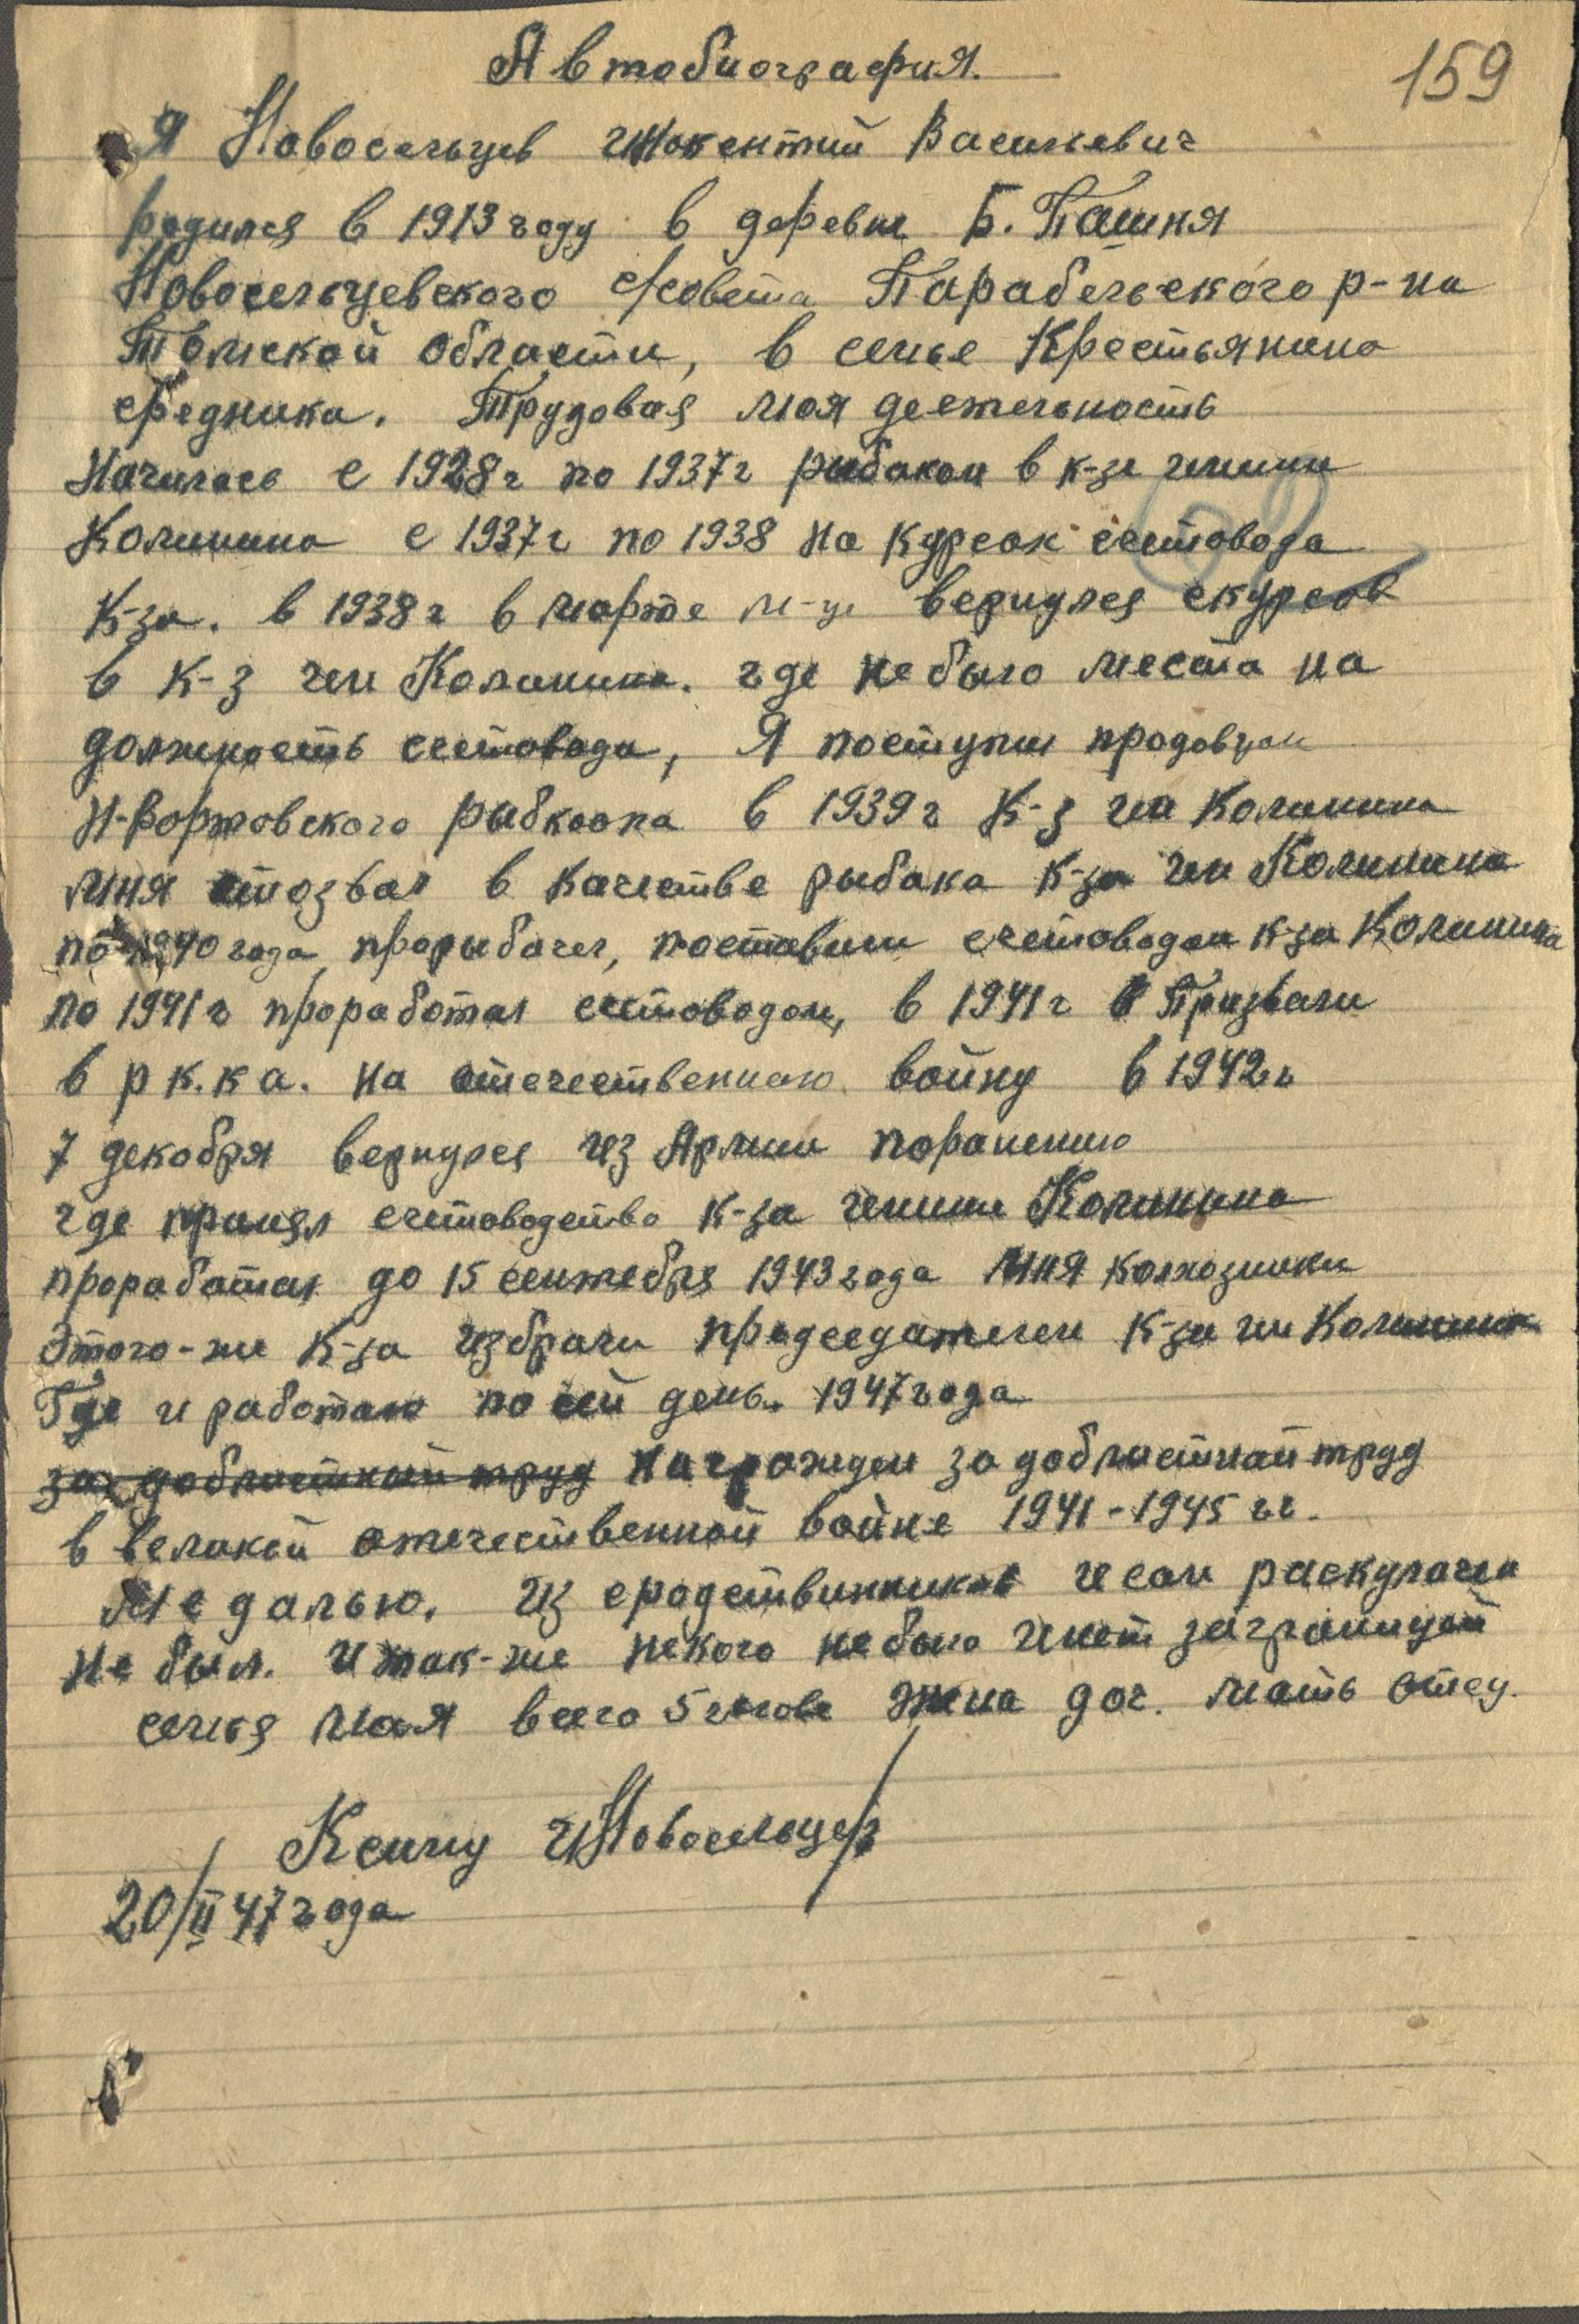 Автобиография.
159
Я Новосельцев Инокентий Васильевич
родился в 1913 году в деревне Б. Пашня
Новосельцевского с/совета Парабельского р-на
Томской области, в семье Крестьянина
средника. Трудовая моя деетельность
Началась с 1928 г по 1937 г рыбаком в к-зе имини
Колинина с 1937 г по 1938 на курсах счетовода
К-за. в 1938 г в марте м-це вернулся скурсов
в К-з им Колинина. где не было места на
должность счетовода, Я поступил продовцом
рыбкоопа в 1939 г К-з им Колинина
мня отозвал в качестве рыбака к-за им Колинина
по 1940 года прорыбачел, поставили счетоводом к-за Колинина
по 1941 г проработал счетоводом, в 1941 г Призвали
в р к.к а. на отечественною войну в 1942 г
7 декабря вернулся из Армии поранению
где принял счетоводство к-за имини Колинина
проработал до 15 сентебря 1943 года мня колхозники
Этого-же К-за избрали председателем К-за им Колинина
Где и работаю по сей день. 1947 года
за доблистный труд Награжден за доблистный труд
в великой отечественной войне 1941-1945 гг.
Медалью. Из сродствинников и сам раскулачен
не был. И так-же некого не было и нет заграницей
семья моя всего 5 жена доч. мать отец.
К сему ИНовосельцев
20/II 47 года